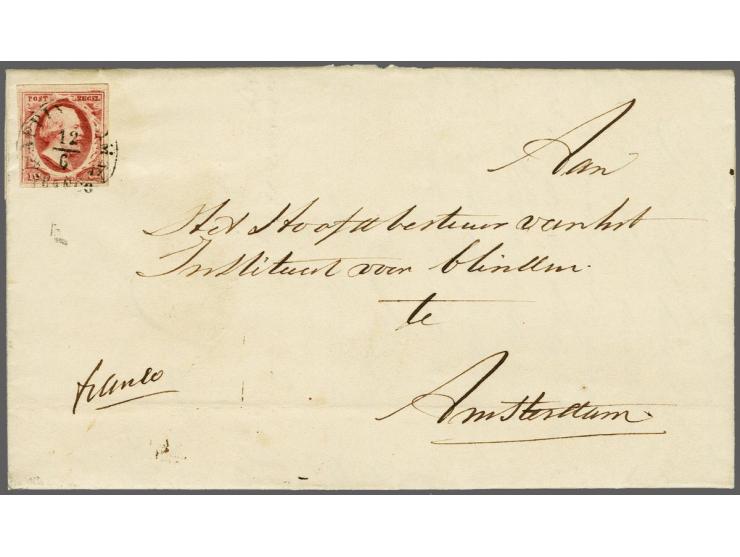 POST ZEGEL
12
6
FRANCO
Aan
Het Hoofdbestuur van het
Instituut voor blinden.
te
franco
Amsterdam.